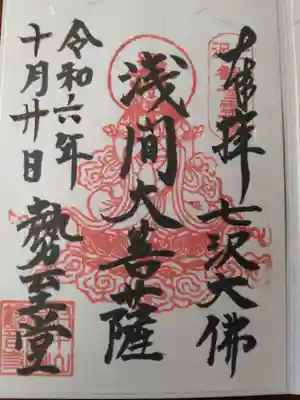 奉拝 七沢大佛
浅間大菩薩
勢至堂
令和六年
十月廿日